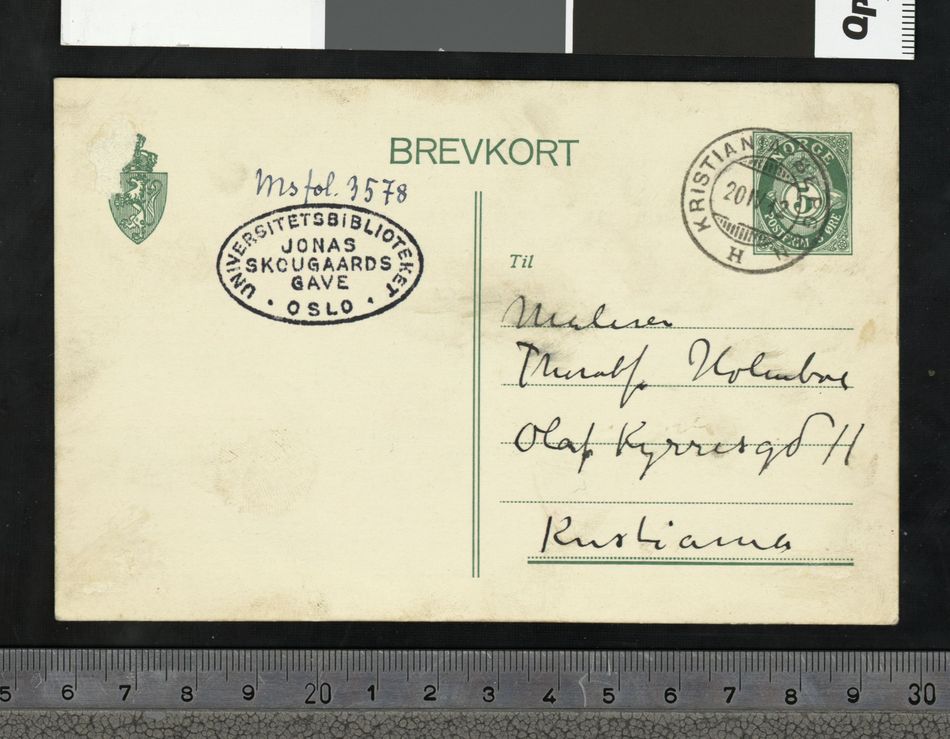 BREVKORT
Ms fol. 3578
UNIVERSITETSBIBLIOTEKET
JONAS
SKOUGAARDS
GAVE
• OSLO •
KRISTIANIA
20 IV 12
H
NORGE
5
POSTFRIM. 5 ØRE
Til
Maleren
Thorolf Holmboe
Olaf Kyrresgd 11
Kristiania
5 6 7 8 9 20 1 2 3 4 5 6 7 8 9 30